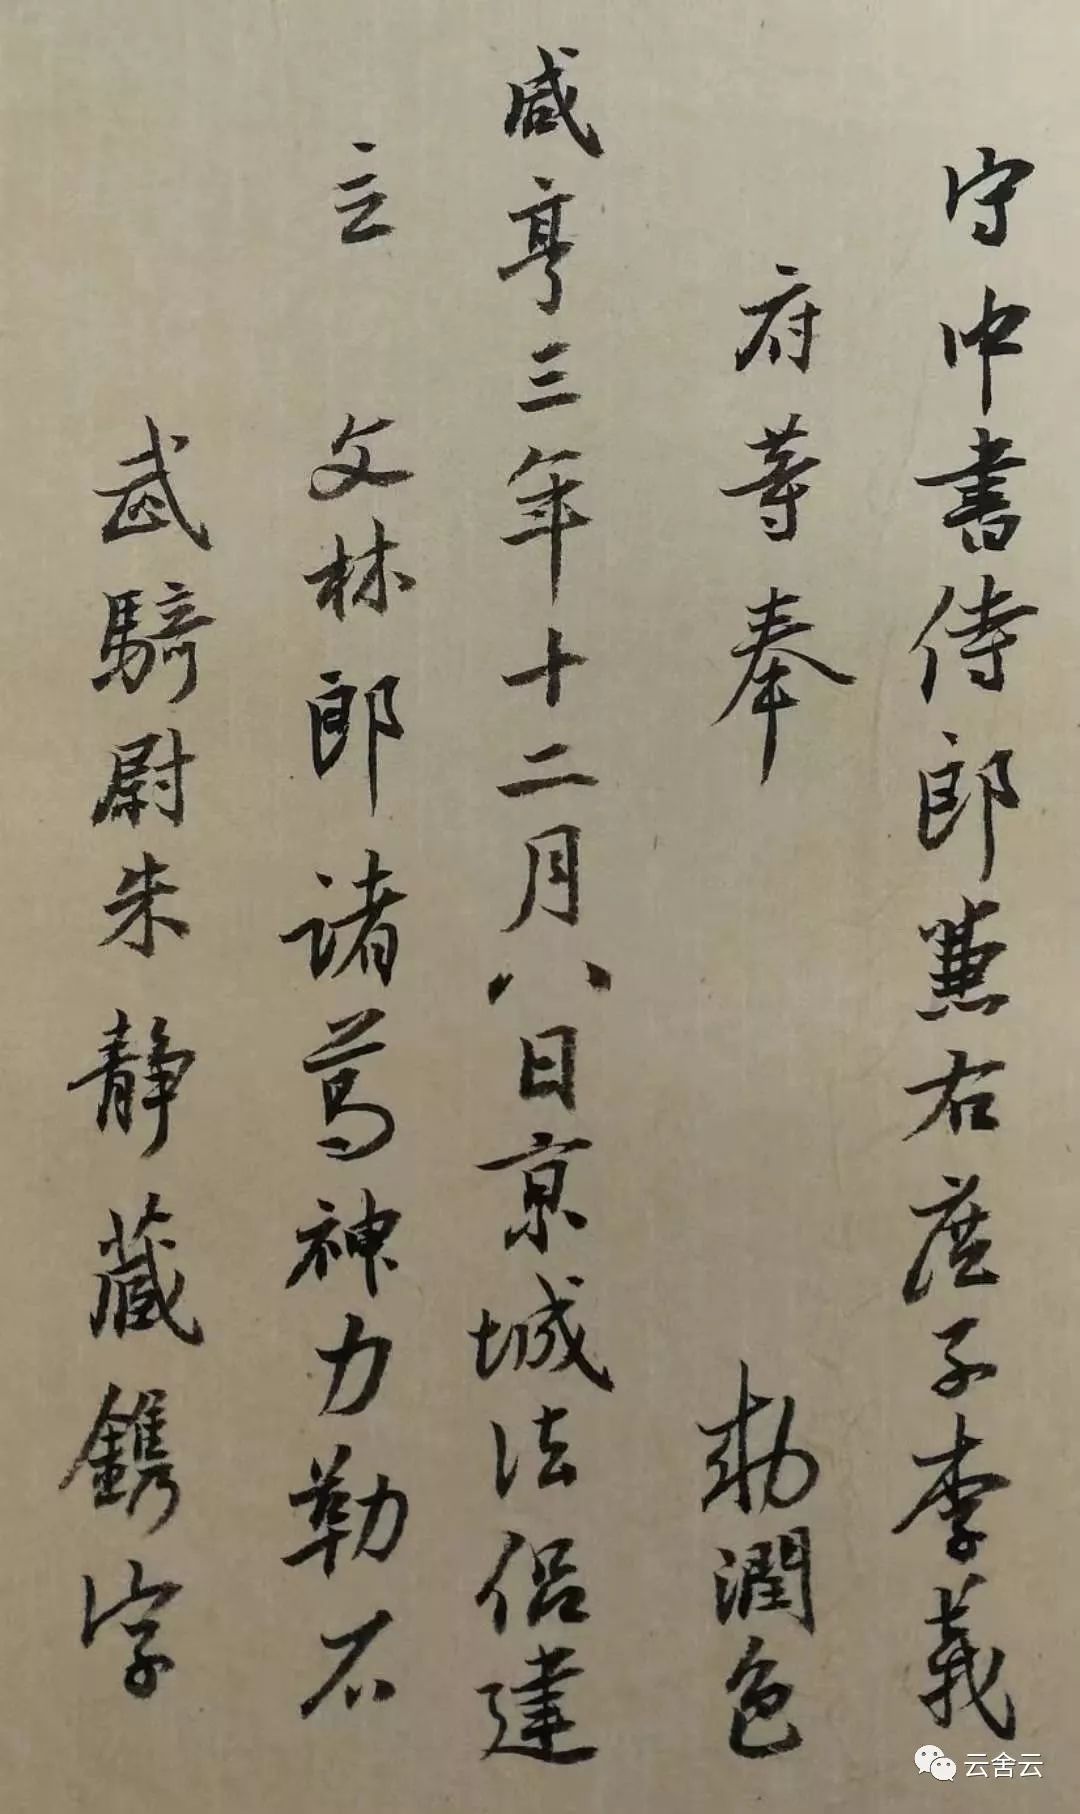 守中書侍郎兼右庶子李義
府等奉　　　勅潤色
咸亨三年十二月八日京城法侶建
立　文林郎諸葛神力勒石
武騎尉朱静藏鐫字
云舍云